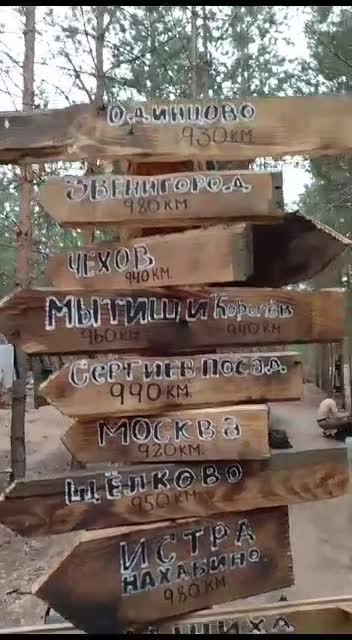 ОДИНЦОВО
930 КМ
ЗВЕНИГОРОД
980 КМ
ЧЕХОВ
940 КМ.
МЫТИЩИ Королёв
960 КМ 940 КМ
СЕРГИЕВ ПОСАД
990 КМ.
МОСКВА
920 КМ.
ЩЁЛКОВО
950 КМ
ИСТРА
НАХАБИНО.
980 КМ